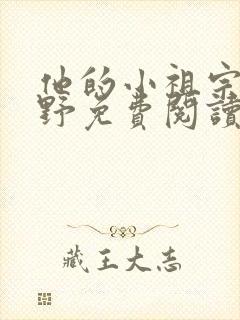 他的小祖宗
野免費閱讀
藏王大志